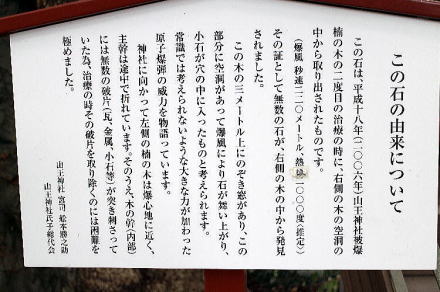 この石の由来について
この石は、平成十八年(二〇〇六年)山王神社被爆
楠の木の二度目の治療の時に、右側の木の空洞の
中から取り出されたものです。
(爆風 秒速二二〇メートル、熱線 二〇〇〇度(推定))
その証として無数の石が、右側の木の中から発見
されました。
この木の三メートル上にのぞき窓があり、この
部分に空洞があって爆風により石が舞い上がり、
小石が穴の中に入ったものと考えられます。
常識では考えられないような大きな力が加わった
原子爆弾の威力を物語っています。
神社に向かって左側の楠の木は爆心地に近く、
主幹は途中で折れています。そのうえ、木の幹(内部)
には無数の破片(瓦、金属、小石等)が突き刺さって
いた為、治療の時その破片を取り除くのには困難を
極めました。
山王神社 宮司 舩本勝之助
山王神社氏子総代会